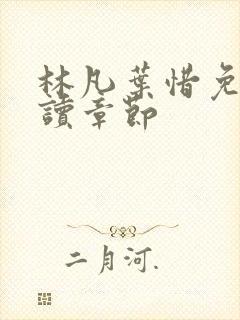 林凡葉惜免
讀章節
二月河.